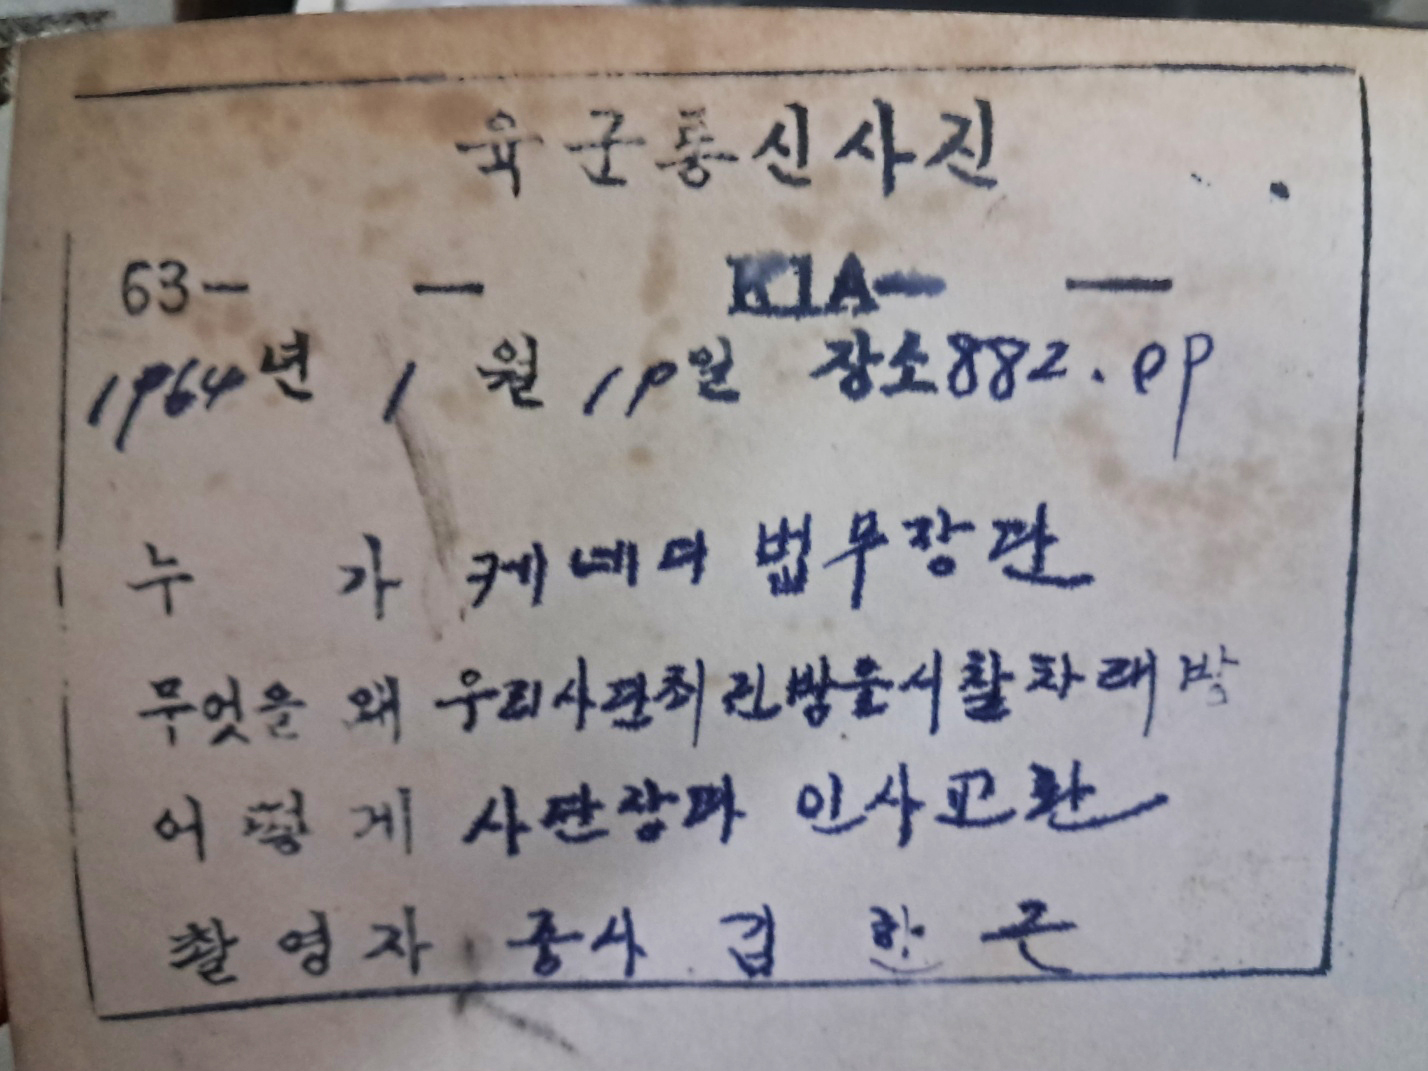 육군통신사진
63- - K1A- -
1964년 1월 19일 장소 882.OP
누가 케네디 법무장관
무엇을 왜 우리사단최전방을시찰차래방
어떻게 사단장과 인사교환
촬영자 중사 김한근